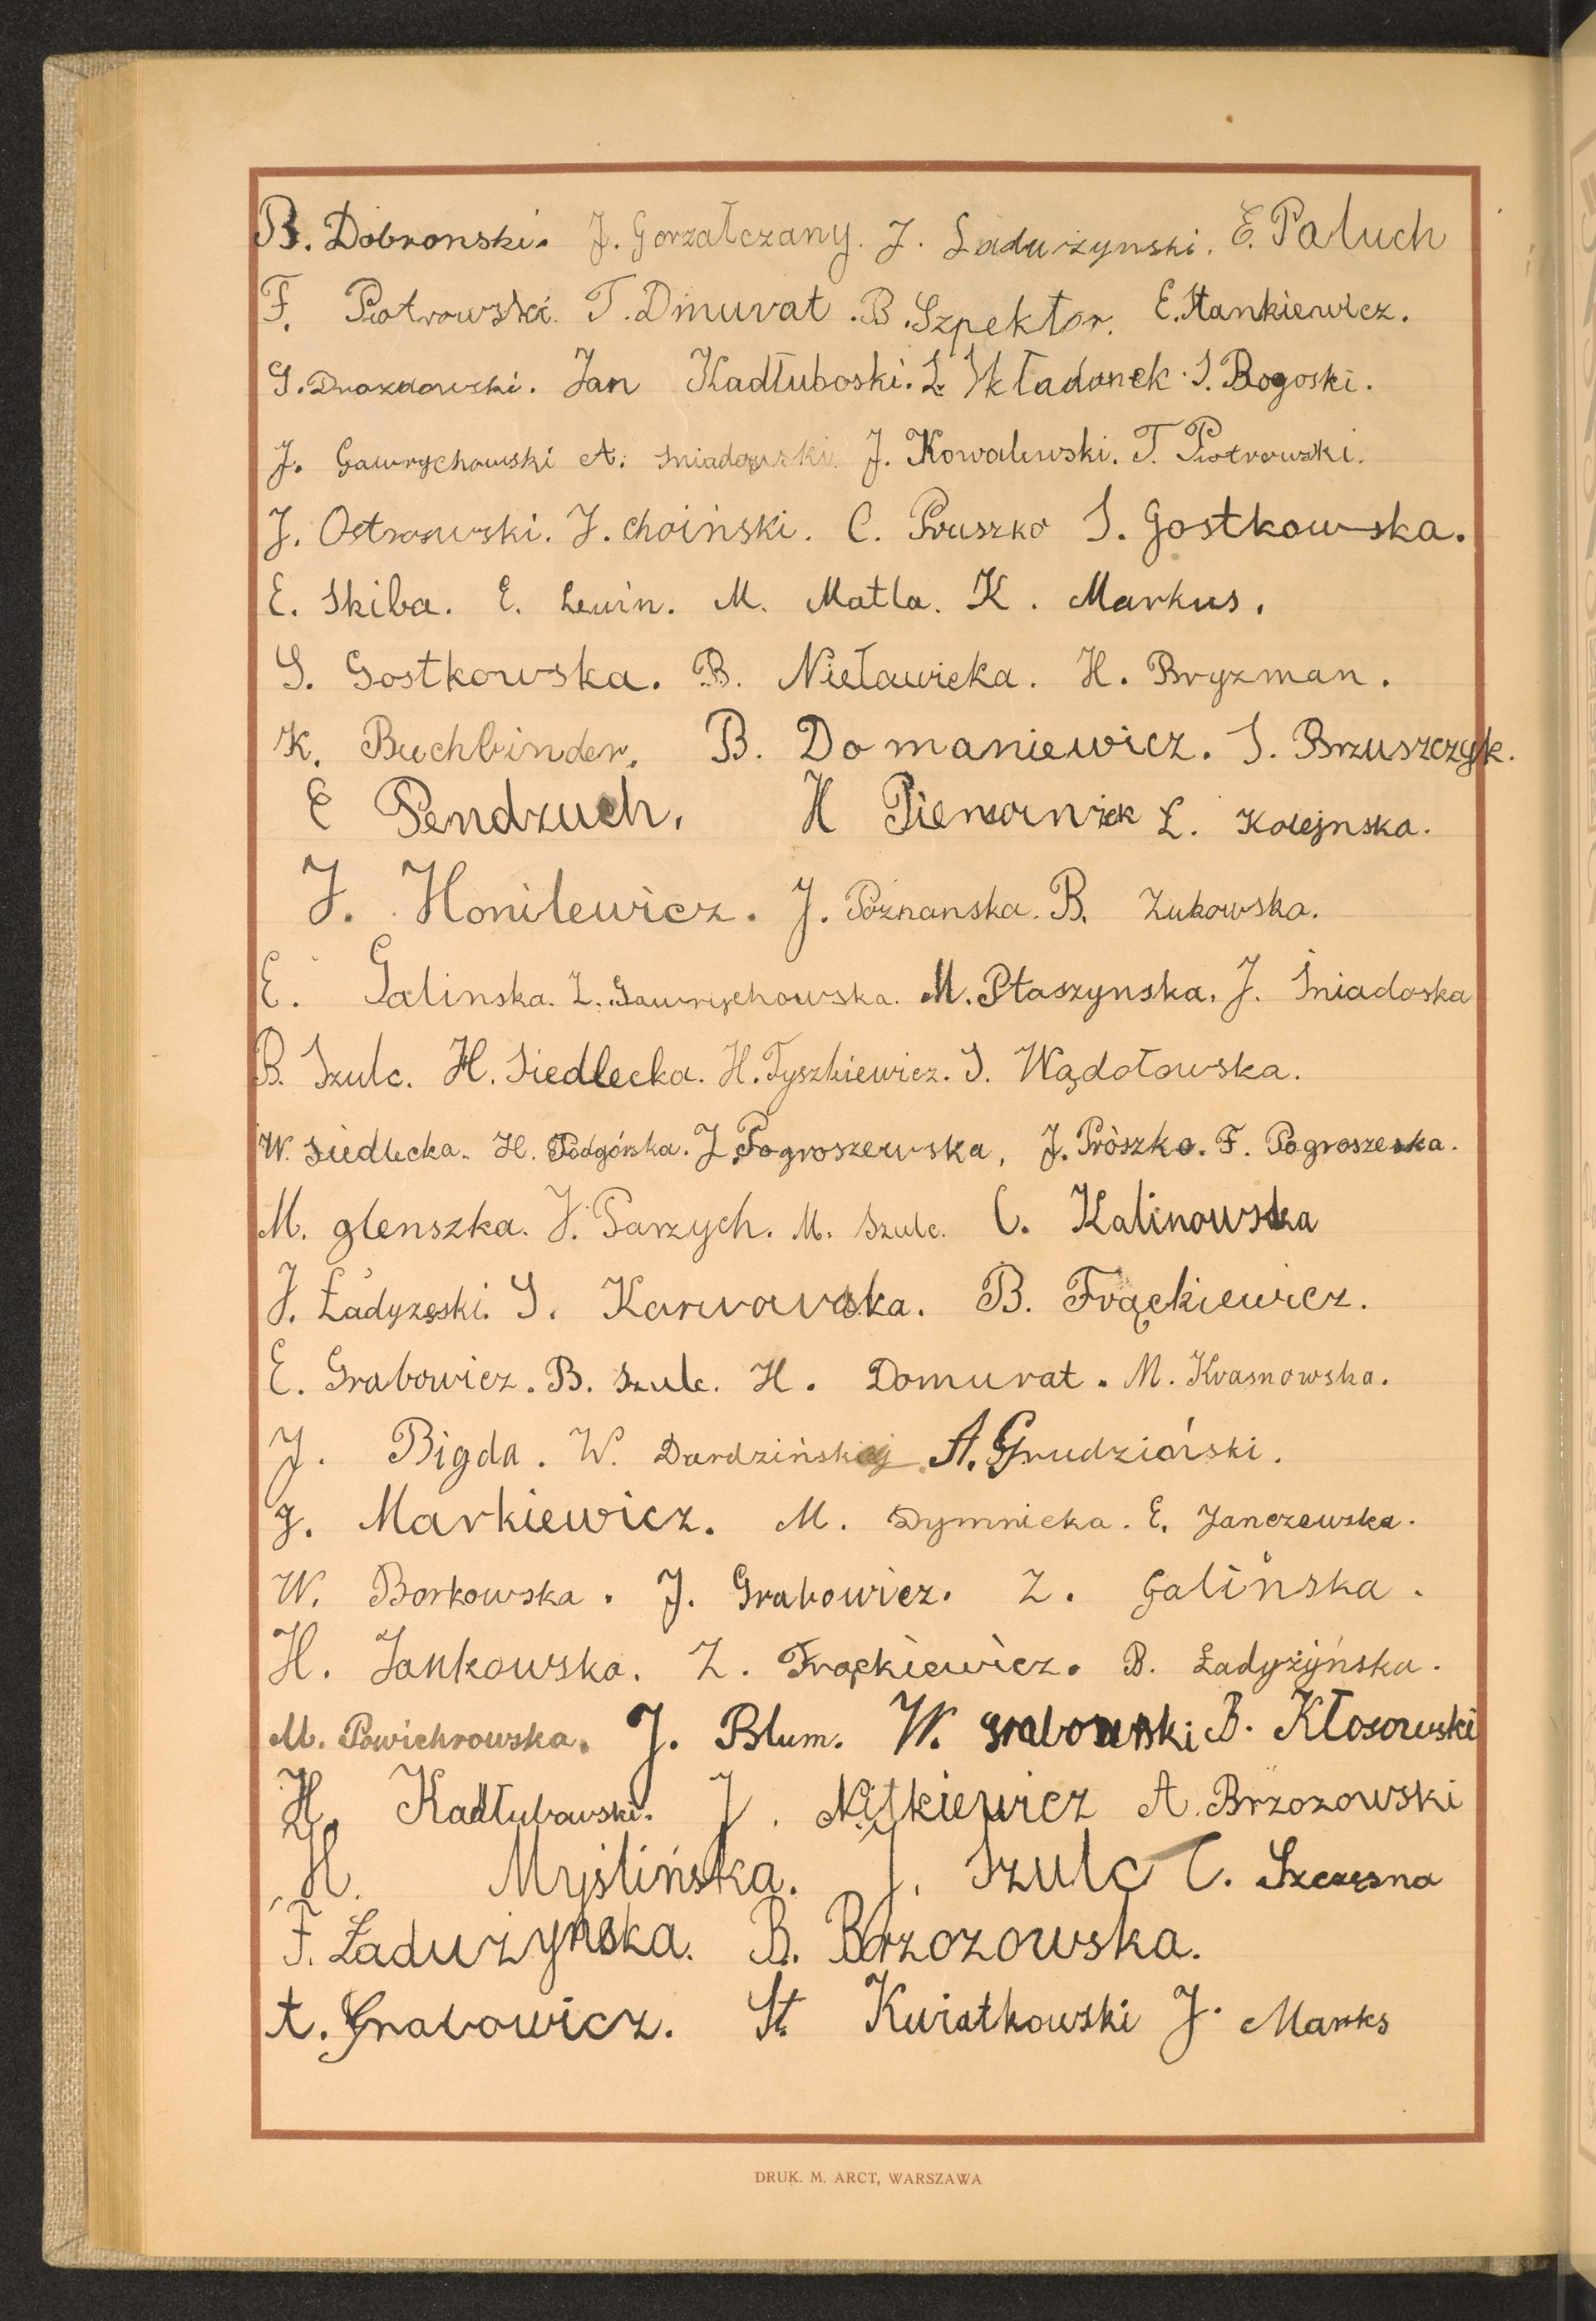 B. Dobronski. J. Gorzałczany. J. Ladużynski. E. Paluch
F. Piotrowski. T. Dmurat. B. Szpektor. E. Stankiewicz.
S. Drozdowski. Jan Kadłuboski. L. Składanek. S. Rogoski.
J. Gawrychowski A. Sniadowski. J. Kowalewski. T. Piotrowski.
J. Ostrowski. J. Choiński. C. Pruszko S. Gostkowska.
E. Skiba. E. Lewin. M. Matla. K. Markus.
S. Gostkowska. B. Nieławicka. H. Bryzman.
K. Buchbinder. B. Domaniewicz. S. Brzuszczyk.
E Pendzuch. H L. Kolejnska.
J. Honilewicz. J. Poznanska. B. Zukowska.
E. Galinska. Z. Gawrychowska. M. Ptaszynska. J. Śniadoska
B. Szulc. H. Siedlecka. H. Tyszkiewicz. S. Wądołowska.
W. Siedlecka. H. Podgórska. J. Pogroszewska, J. Prószko. F. Pogroszeska.
M. glenszka. J. Parzych. M. Szulc. C. Kalinowska
J. Ładyzeski. S. Karwowska. B. Frąckiewicz.
E. Grabowicz. B. Szulc. H. Domurat. M. Krasnowska.
J. Bigda. W. Dardzińskiej A. Grudziński.
J. Markiewicz. M. Dymnicka. E. Janczewska.
W. Borkowska. J. Grabowicz. Z. Galińska.
H. Jankowska. Z. Frąckiewicz. B. Ładyżyńska.
M. Powichrowska. J. Blum. W. Grabowski B. Kłosowski
H. Kadłubowski. J. Nitkiewicz A. Brzozowski
H. Myślińska. J. Szulc C. Szczęsna
F. Ładużynska. B. Brzozowska.
t. Grabowicz. St. Kwiatkowski J. Marks
DRUK. M. ARCT, WARSZAWA